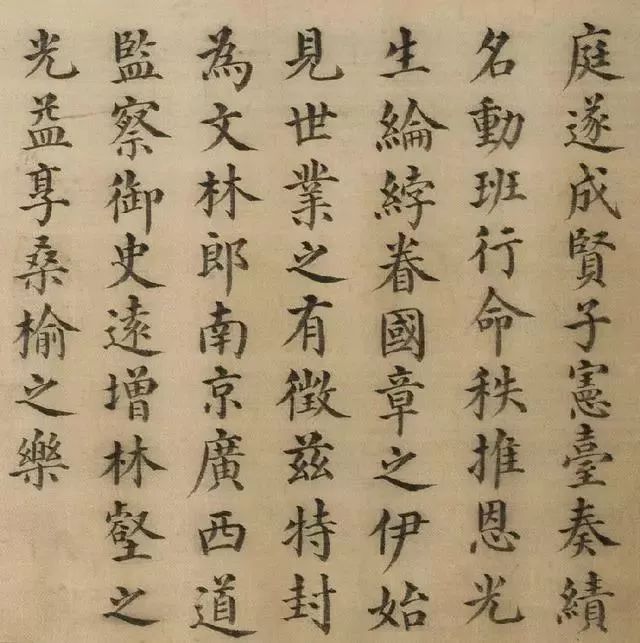 庭遂成賢子憲臺奏績
名動班行命秩推恩光
生綸綍眷國章之伊始
見世業之有徵茲特封
為文林郎南京廣西道
監察御史遠增林壑之
光益享桑榆之樂